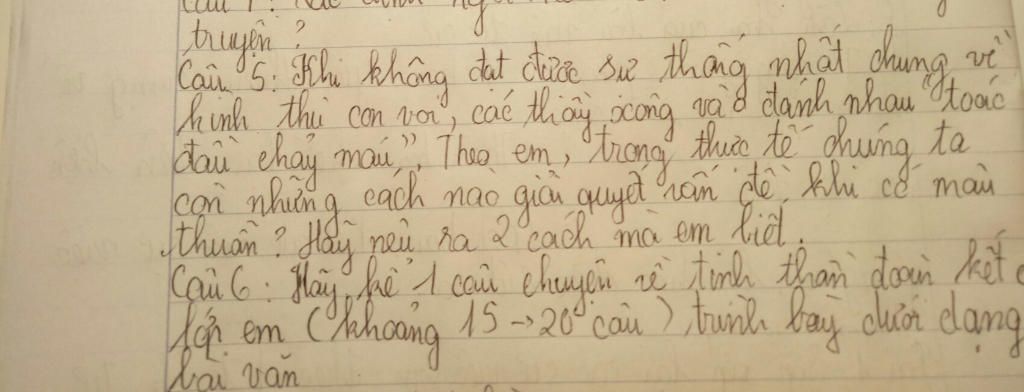 truyện?
Câu 5: Khi không đạt được sự thống nhất chung về
hình thù con voi, các thầy xông vào đánh nhau "toác
đầu chảy máu". Theo em, trong thực tế chúng ta
còn những cách nào giải quyết vấn đề khi có mâu
thuẫn? Hãy nêu ra 2 cách mà em biết.
Câu 6: Hãy kể 1 câu chuyện về tinh thần đoàn kết
lớp em (khoảng 15 → 20 câu), trình bày dưới dạng
bài văn